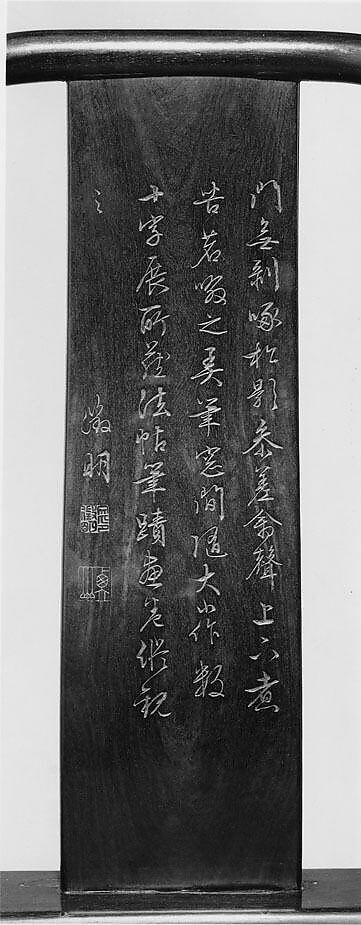 門無剝啄松影參差禽聲上下煮
苦茗啜之弄筆窓間隨大小作數
十字展所藏法帖筆蹟畫卷縱觀
之
徵明